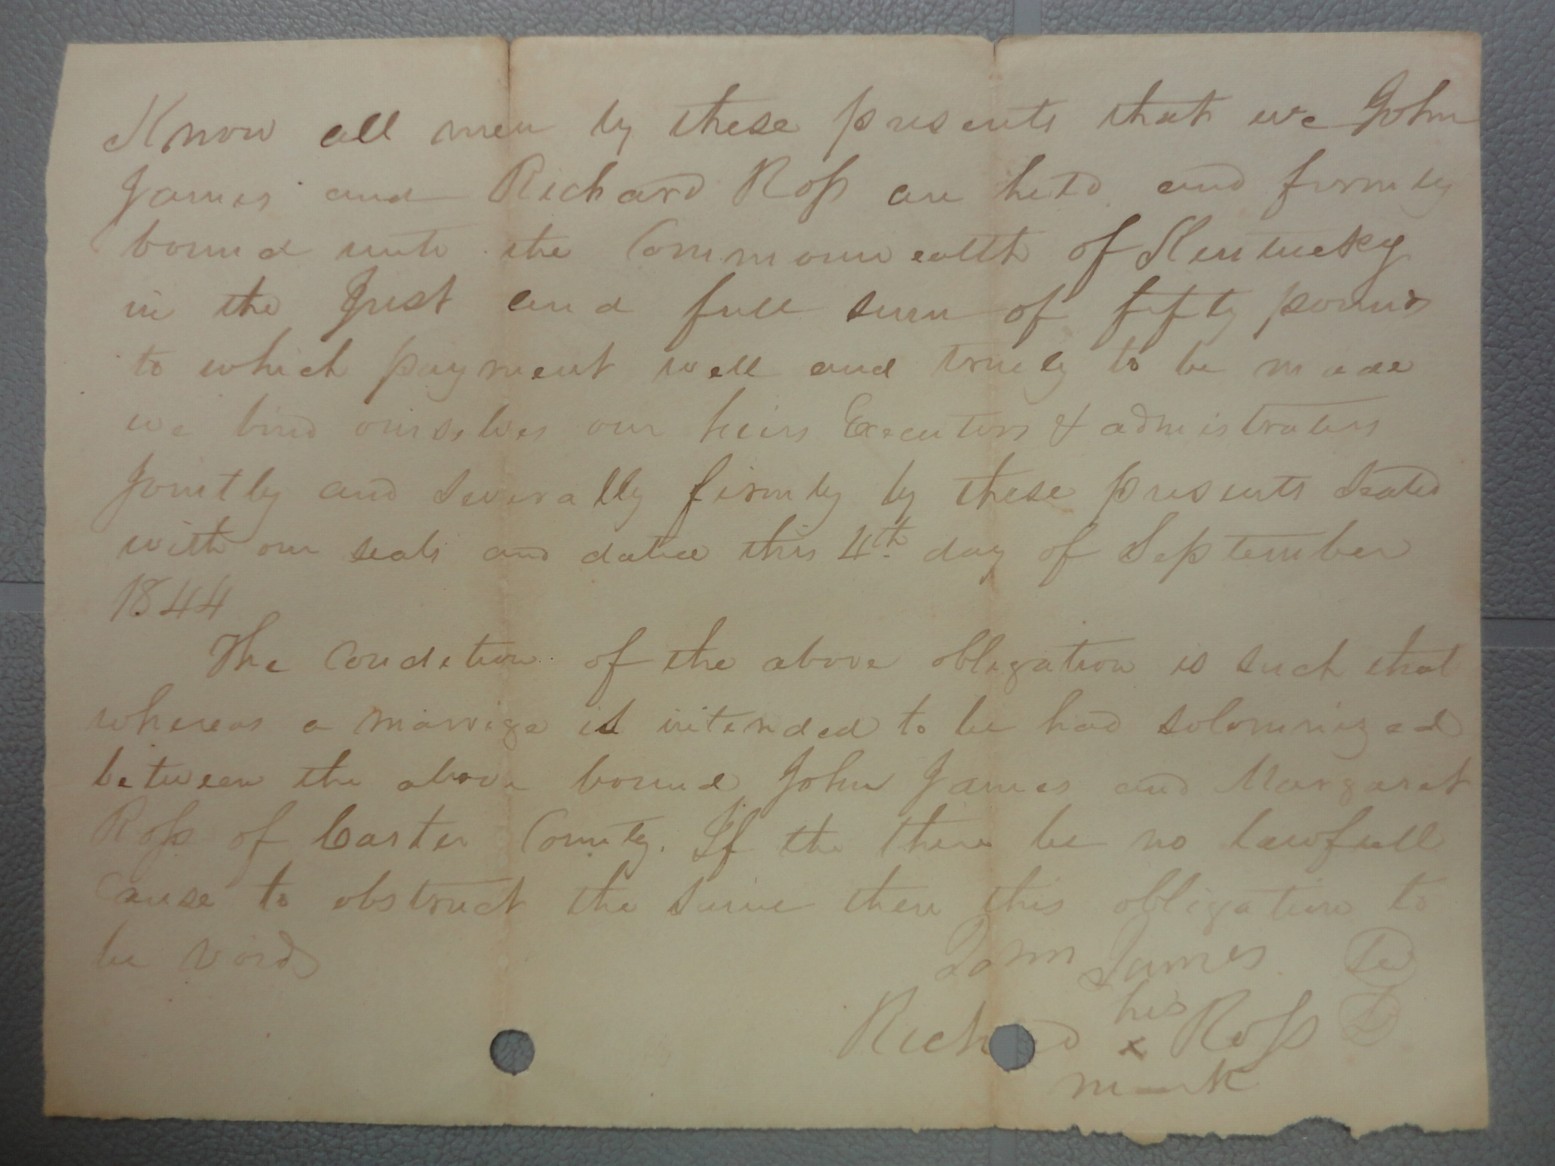 Know all men by these presents that we John
James and Richard Ross are held and firmly
bound unto the Commonwealth of Kentucky
in the Just and full sum of fifty pounds
to which payment well and truely to be made
we bind ourselves our heirs Executors & admistrators
Jointly and Severally firmly by these presents Sealed
with our seals and dated this 4th day of September
1844
The Condition of the above obligation is such that
whereas a marrige is intended to be had solomnized
between the above bound John James and Margaret
Ross of Carter County. If the there be no lawfull
Cause to obstruct the same then this obligation to
be void
John James
his
Richard x Ross
mark